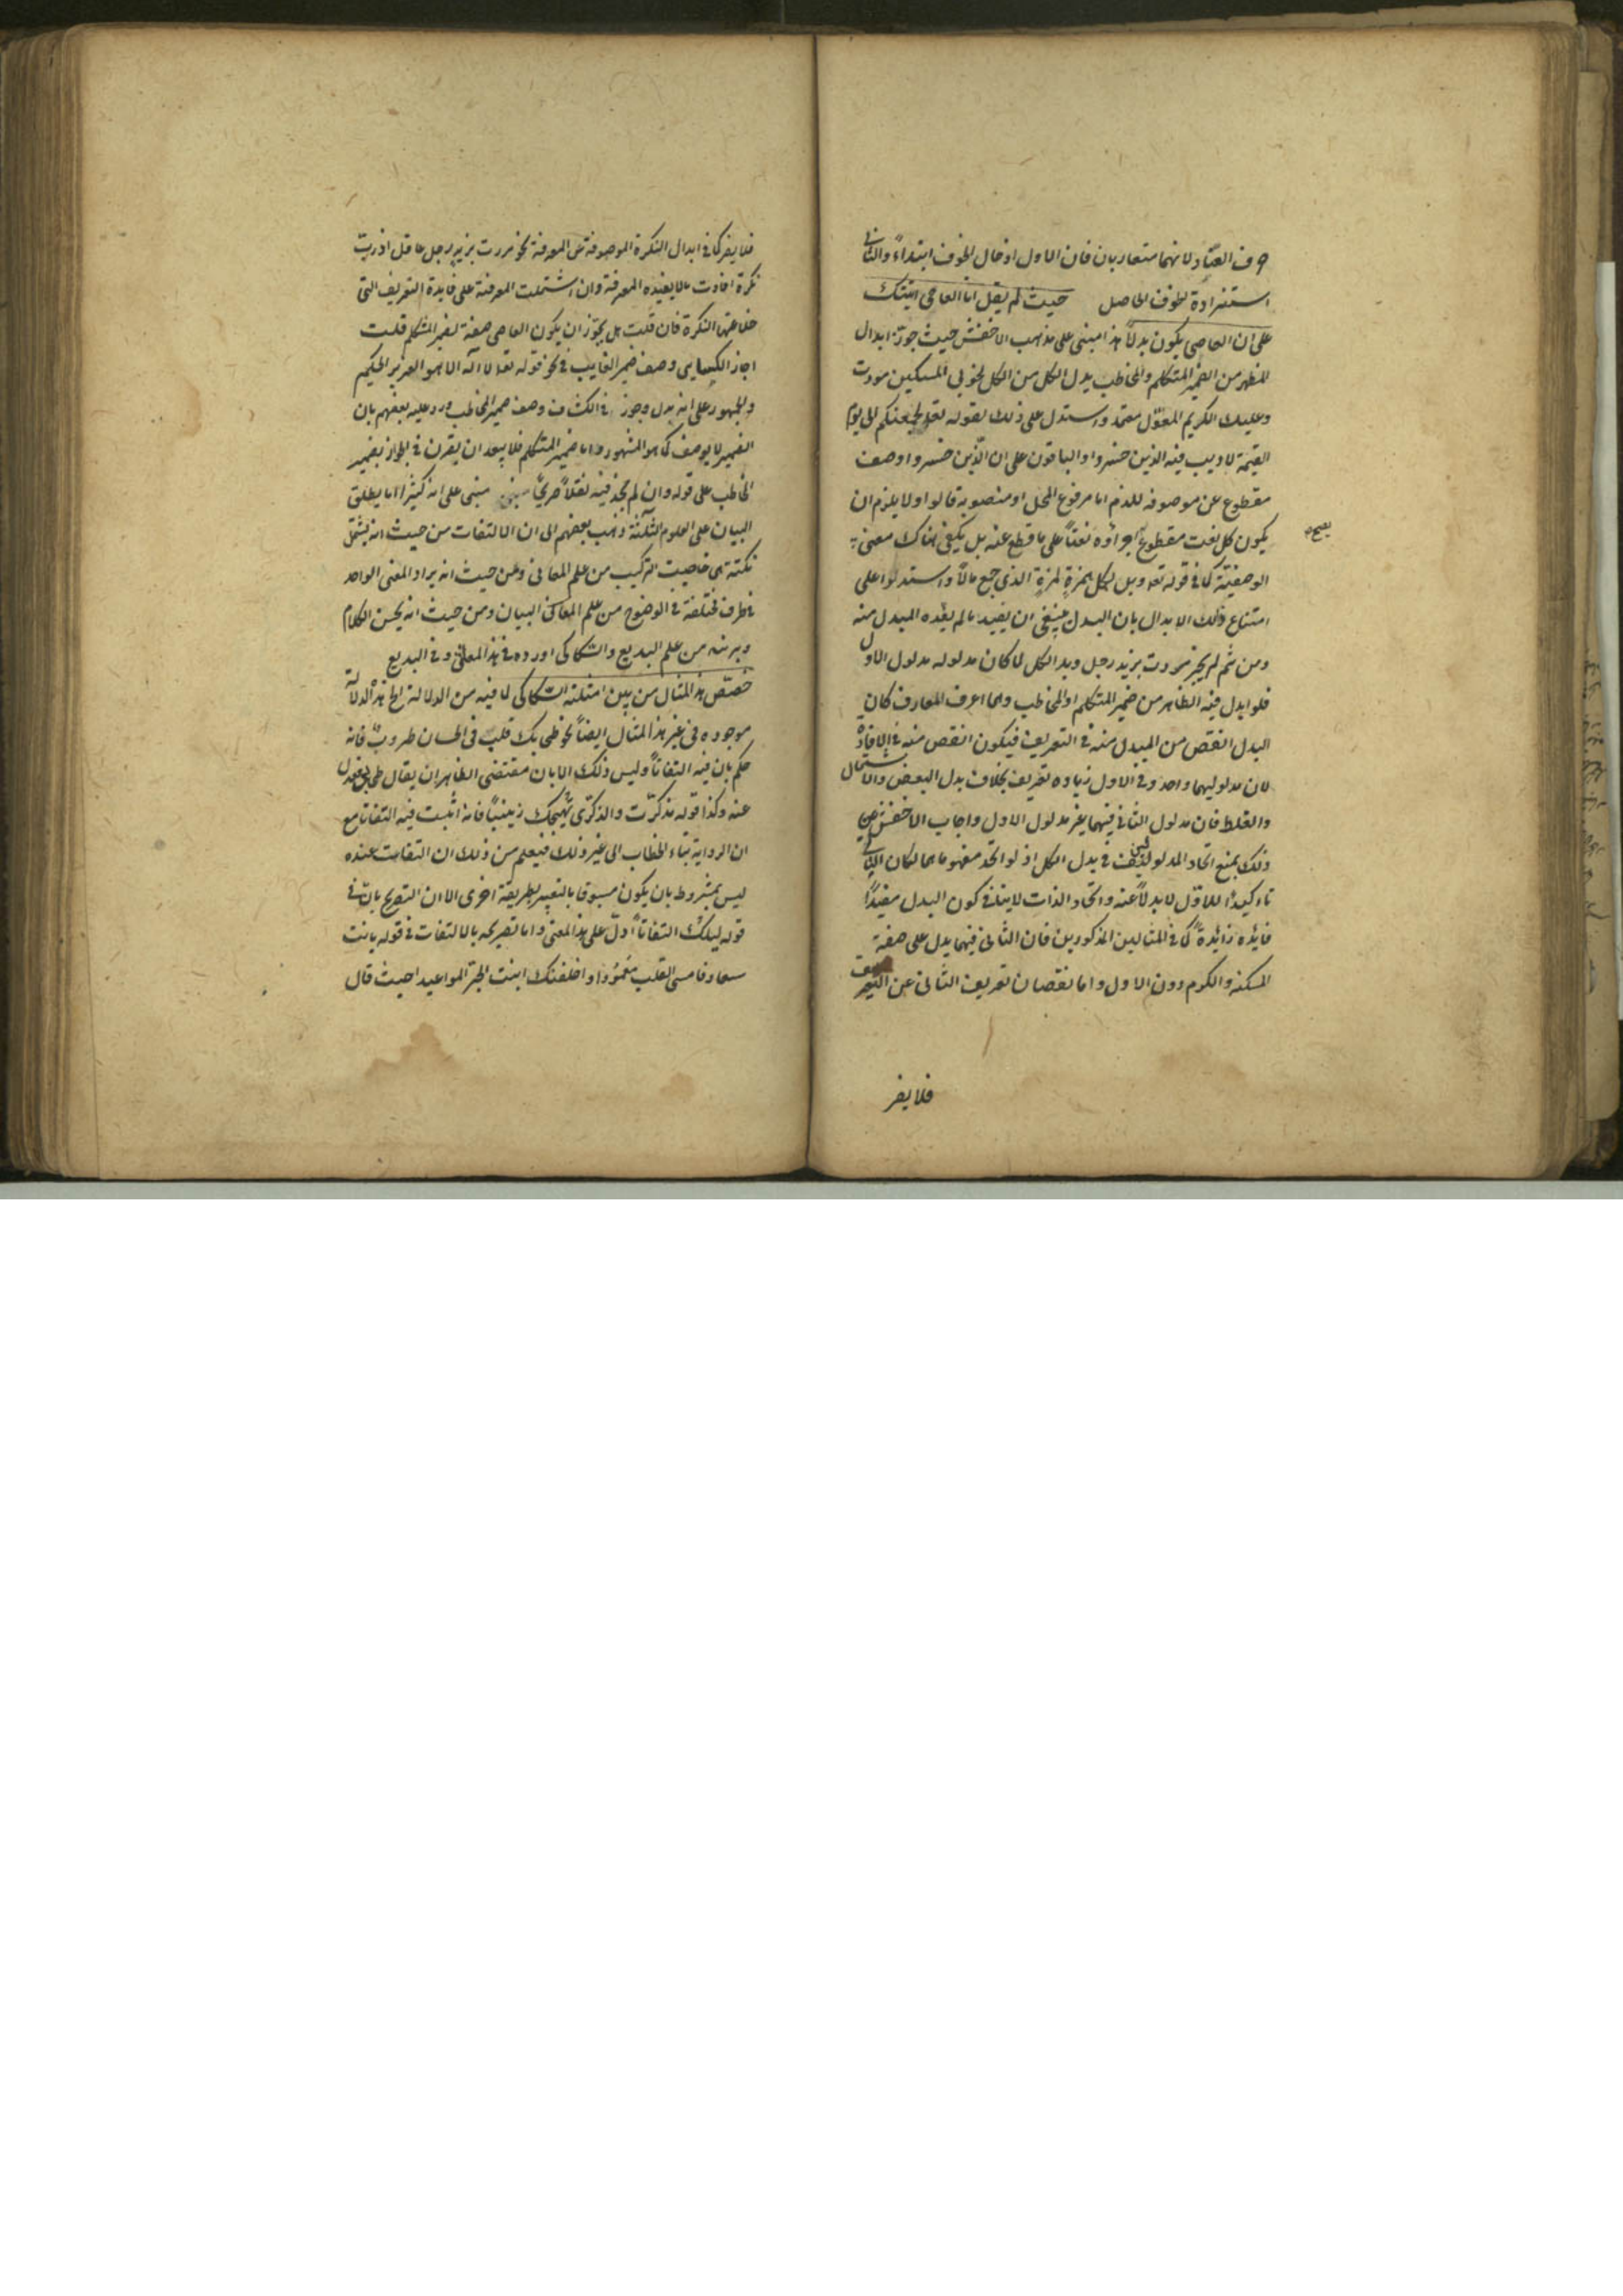 لانهما متقاربان فان الاول ادخال الخوف ابتداءً والثاني
استزادة للخوف الحاصل حيث لم يقل انا العاصي اتيتك
على ان العاصي يكون بدلاً هذا مبني على مذهب الاخفش حيث جوّز ابدال
المظهر من الضمير المتكلم والمخاطب بدل الكل من الكل نحو بي المسكين مررت
وعليك الكريم المعوّل معتمد واستدل على ذلك بقوله تعلى ليجمعنكم الى يوم
القيمة لا ريب فيه الذين خسروا والباقون على ان الذين خسروا وصف
مقطوع عن موصوفه للذم اما مرفوع المحل او منصوبه قالوا ولا يلزم ان
يكون كل نعت مقطوع اجراؤه نعتاً على ما قطع عنه بل يكفي هناك معنى
يصح
الوصفيّة كما في قوله تعه ويل لكل همزةٍ لمزةٍ الذي جمع مالاً واستدلوا على
امتناع ذلك الابدال بان البدل ينبغي ان يفيد مالم يفده المبدل منه
ومن ثم لم يجز مررت بزيد رجل وبدل الكل لما كان مدلوله مدلول الاول
فلو ابدل فيه الظاهر من ضمير المتكلم او المخاطب وهما اعرف المعارف كان
البدل انقص من المبدل منه في التعريف فيكون انقص منه في الافادة
لان مدلوليهما واحد وفي الاول زياده تعريف بخلاف بدل البعض والاشتمال
والغلط فان مدلول الثاني فيهما غير مدلول الاول واجاب الاخفش عن
ذلك بمنع اتحاد المدلولين في بدل الكل اذ لو اتحد مفهوماهما لكان الثاني
تاءكيدًا للاوّل لا بدلاً عنه واتحاد الذات لا ينافي كون البدل مفيدًا
فايده زايدةً كما في المثالين المذكورين فان الثاني فيهما يدل على صفة
المسكنه والكرم دون الاول واما نقصان تعريف الثاني عن
فلا يضر
فلا يضر كما في ابدال النكرة الموصوفة عن المعرفة نحو مررت بزيد رجل عاقل اذ ربّ
نكرة افادت مالا يفيده المعرفة وان اشتملت المعرفة على فايدة التعريف التي
خلا عنها النكرة فان قلت هل يجوّز ان يكون العاصي صفة لضمير المتكلم قلت
اجاز الكسايي وصف ضمير الغايب في نحو قوله تعه لا اله الا هو العزيز الحكيم
والجمهور على انه بدل وجوز في الكشاف وصف ضمير المخاطب ورد عليه بعضهم بان
الضمير لا يوصف كما هو المشهور واما ضمير المتكلم فلا يبعد ان يقرن في الجواز بضمير
المخاطب على قوله وان لم نجد فيه نقلاً صريحًا مبني على انه كثيرًا ما يطلق
البيان على العلوم الثلثة ذهب بعضهم الى ان الالتفات من حيث انه يشتمل
نكتة هي خاصيت التركيب من علم المعاني ومن حيث انه يراد المعنى الواحد
في طرف مختلفة في الوضوح من علم البيان ومن حيث انه يحسن الكلام
ويزينه من علم البديع والسكاكي اورده في هذا المعاني وفي البديع
خصّص هذا المثال من بين امثلته السكاكي لما فيه من الدلالة الخ هذه الدلالة
موجوده في غير هذا المثال ايضاً نحو طحى بك قلب في الحسان طروبٌ فانه
حكم بان فيه التفاتاً وليس ذلك الا بان مقتضى الظاهر ان يقال طحى بي فعدل
عنه وكذا قوله تذكرّت والذكرى تهيّجك زينبًا فانه اثبت فيه التفاتا مع
ان الرواية بتاء الخطاب الى غير ذلك فيعلم من ذلك ان التفات عنده
ليس بمشروط بان يكون مسبوقا بالتعبير بطريقة اخرى الا ان التصريح بان في
قوله ليلك التفاتاً ادلّ على هذا المعنى واما تصريحه بالالتفات في قوله بانت
سعاد فامسى القلب معمودًا واخلفتك ابنت الحرّ المواعيدا حيث قال